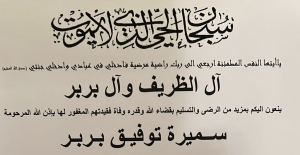 سبحان الحي الذي لا يموت
يا أيتها النفس المطمئنة ارجعي الى ربك راضية مرضية فادخلي في عبادي وادخلي جنتي
آل الظريف وآل بربر
ينعون اليكم بمزيد من الرضى والتسليم بقضاء الله وقدره وفاة فقيدتهم المغفور لها بإذن الله المرحومة
سميرة توفيق بربر